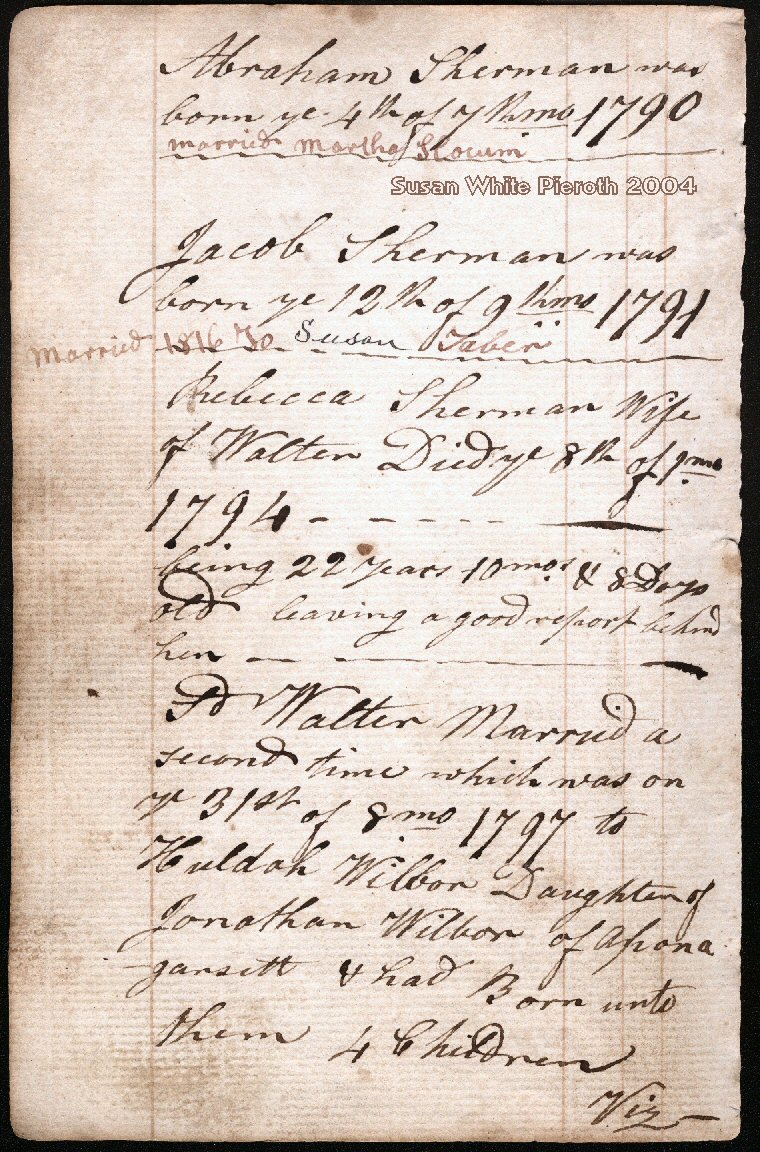 Abraham Sherman was
born ye 4th of 7thmo 1790
married Martha Slocum
Susan White Pieroth 2004
Jacob Sherman was
born ye 12th of 9thmo 1791
Married 1816 To Susan Taber
Rebecca Sherman Wife
of Walter Died ye 8th of 1mo
1794 - - - - -
being 22 years 10mos & 8 Days
old leaving a good report behind
her - - -
Sd Walter Married a
second time which was on
ye 31st of 8mo 1797 to
Huldah Wilbor Daughter of
Jonathan Wilbor of Apona
gansett & had Born unto
them 4 Children
Viz -